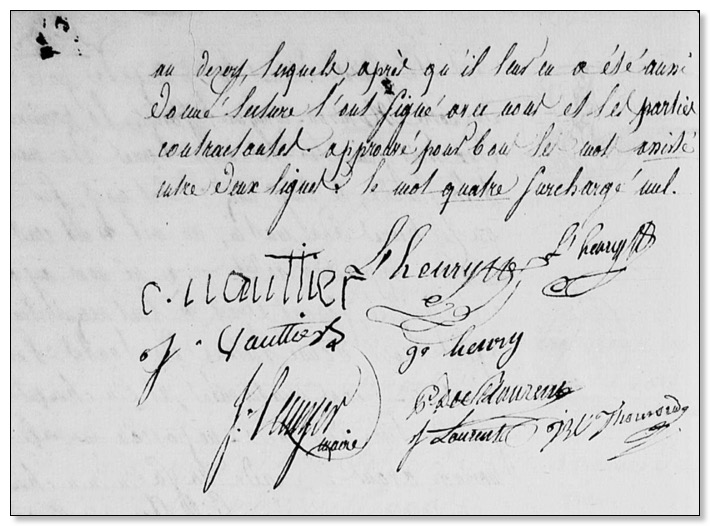 au depot, lesquels, après qu'il leur en a été aussi
donné lecture l'ont signé avec nous et les parties
contractantes approuvé pour bon les mot assisté
entre deux lignes & le mot quatre surchargé nul.
c. vauttier Ls henry Ls henry
j. Vauttier ge henry
maire
j Laurent